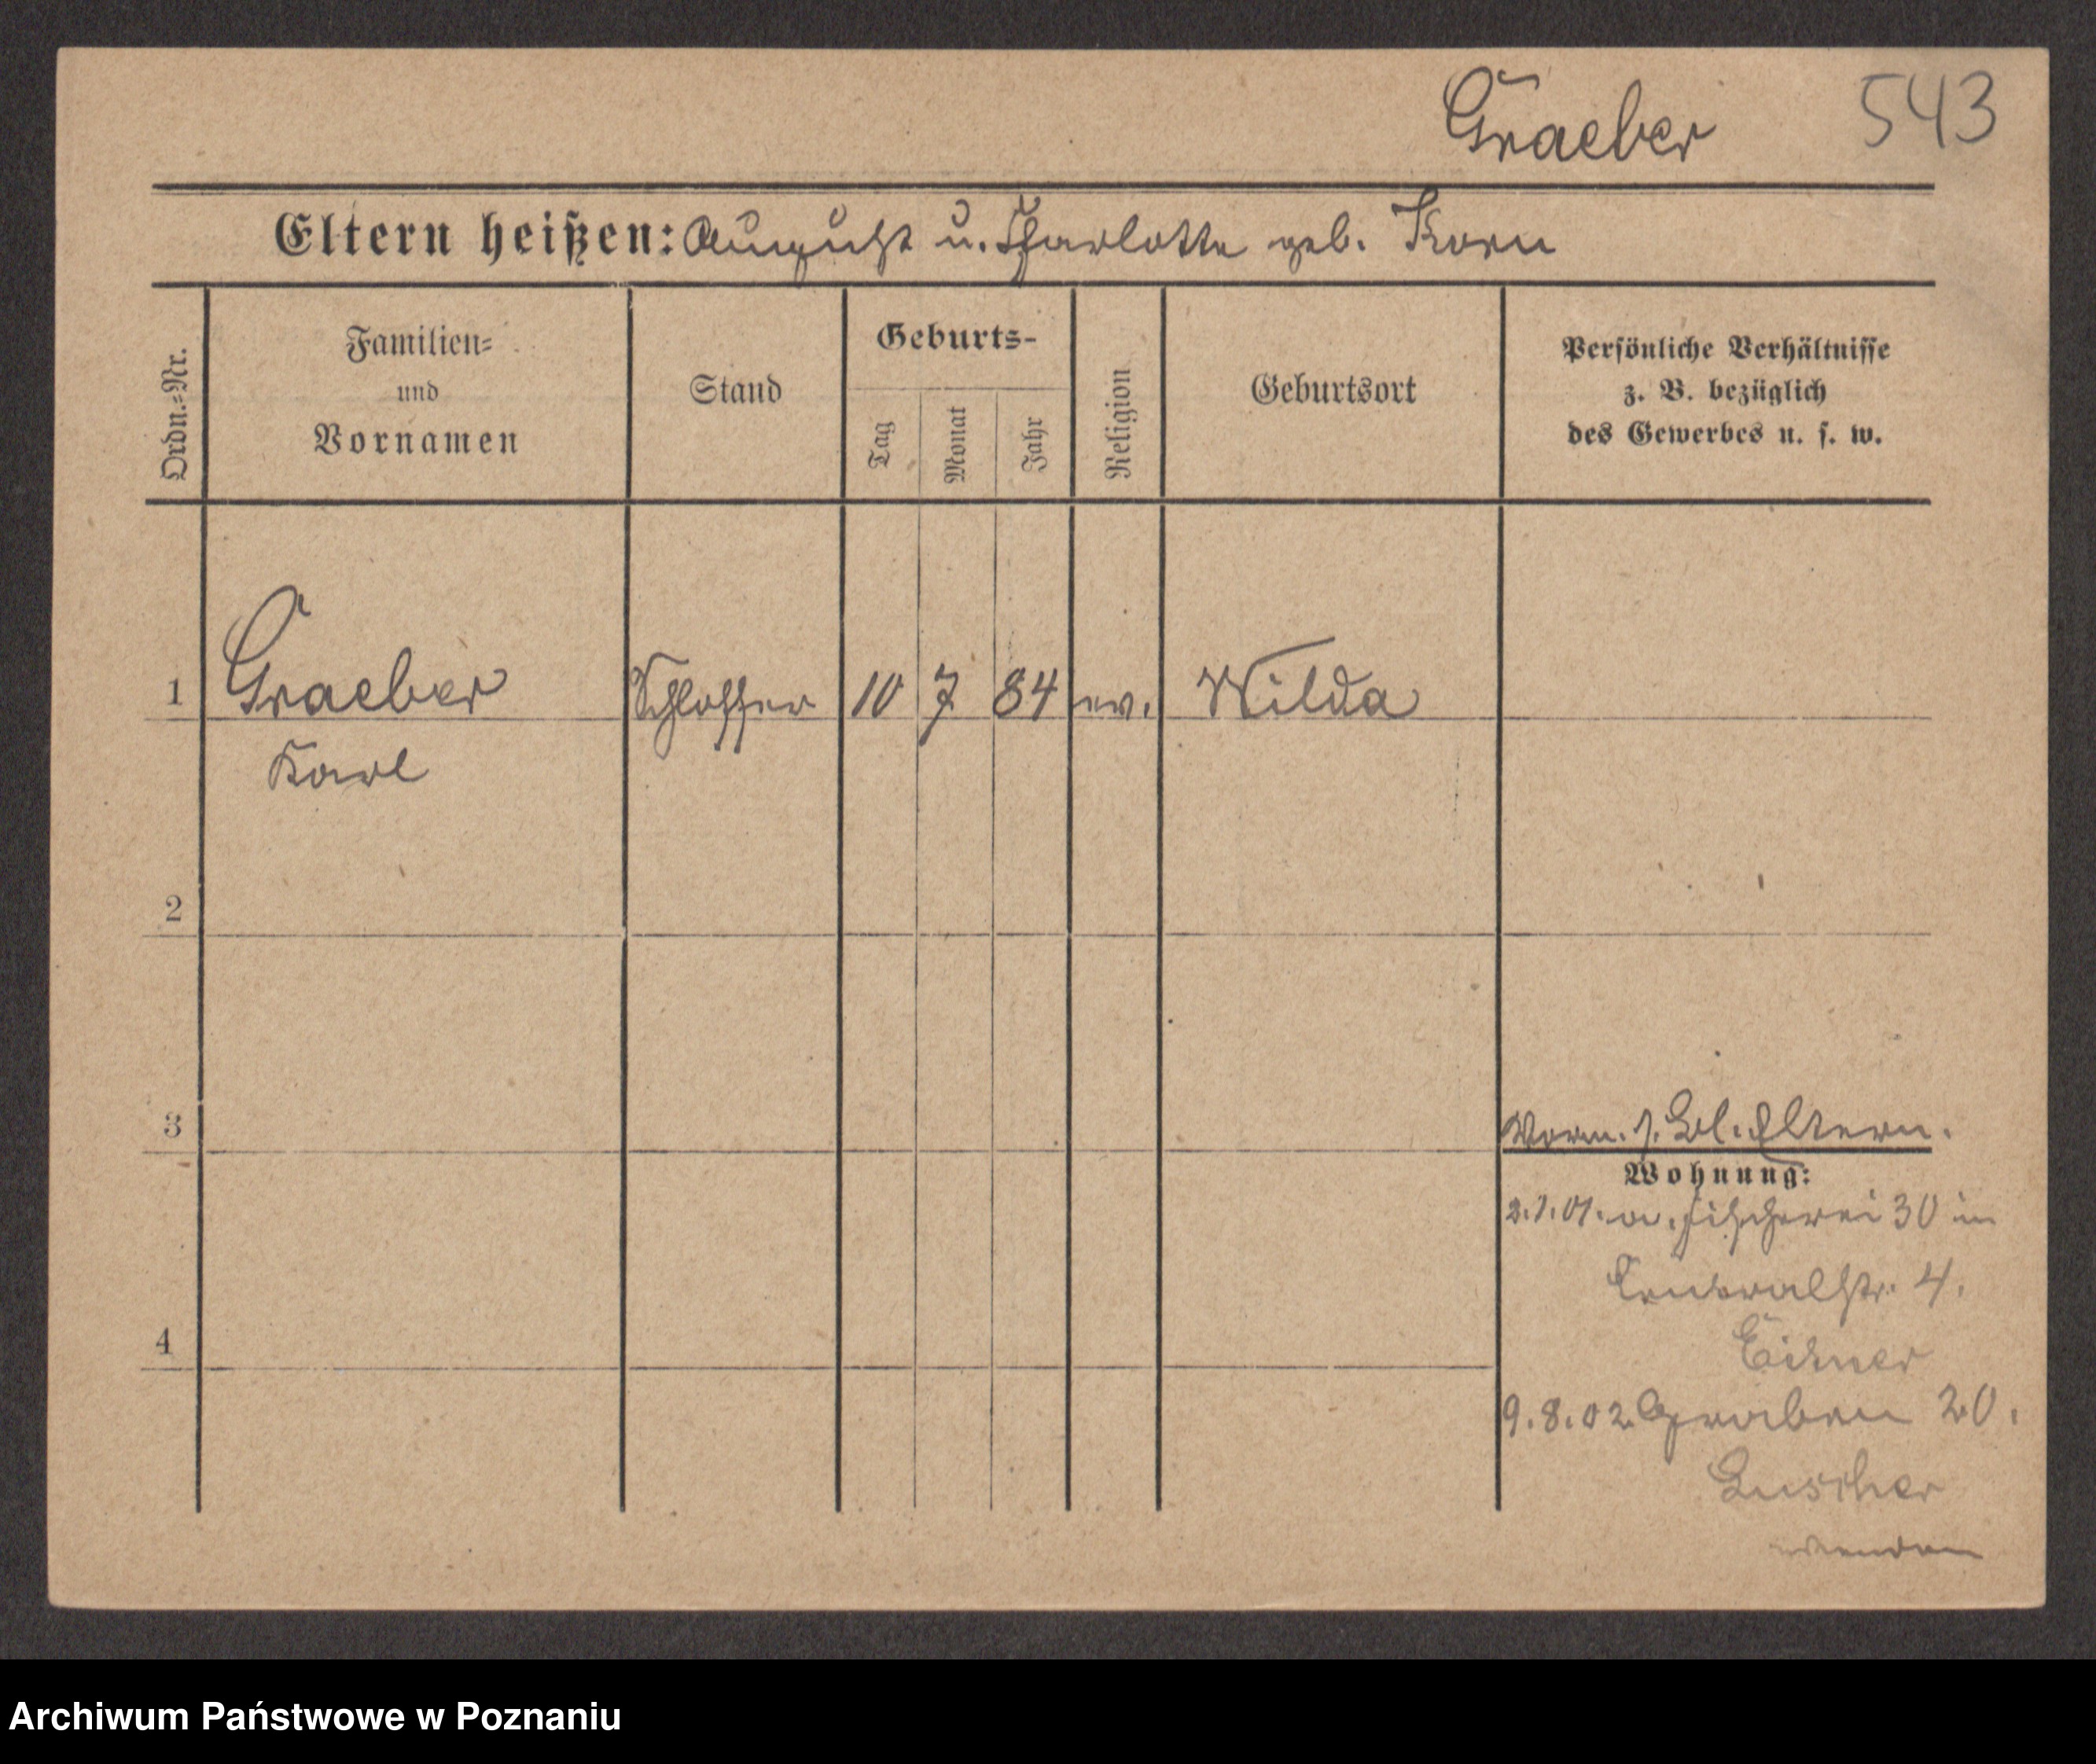 Graeber 543
Eltern heißen: August u. Charlotte geb. Korn
Ordn.=Nr.
Familien=
und
Vornamen
Stand
Geburts-
Tag
Monat
Jahr
Religion
Geburtsort
Persönliche Verhältnisse
z. B. bezüglich
des Gewerbes u. s. w.
1 Graeber Schlosser 10 7 84 ev. Wilda
Karl
2
3
Vorm. s. Bl. Eltern.
Wohnung:
2.1.01. a. Fischerei 30 in
Centralstr. 4.
9.8.02 Graben 20.
4
wenden
Archiwum Państwowe w Poznaniu